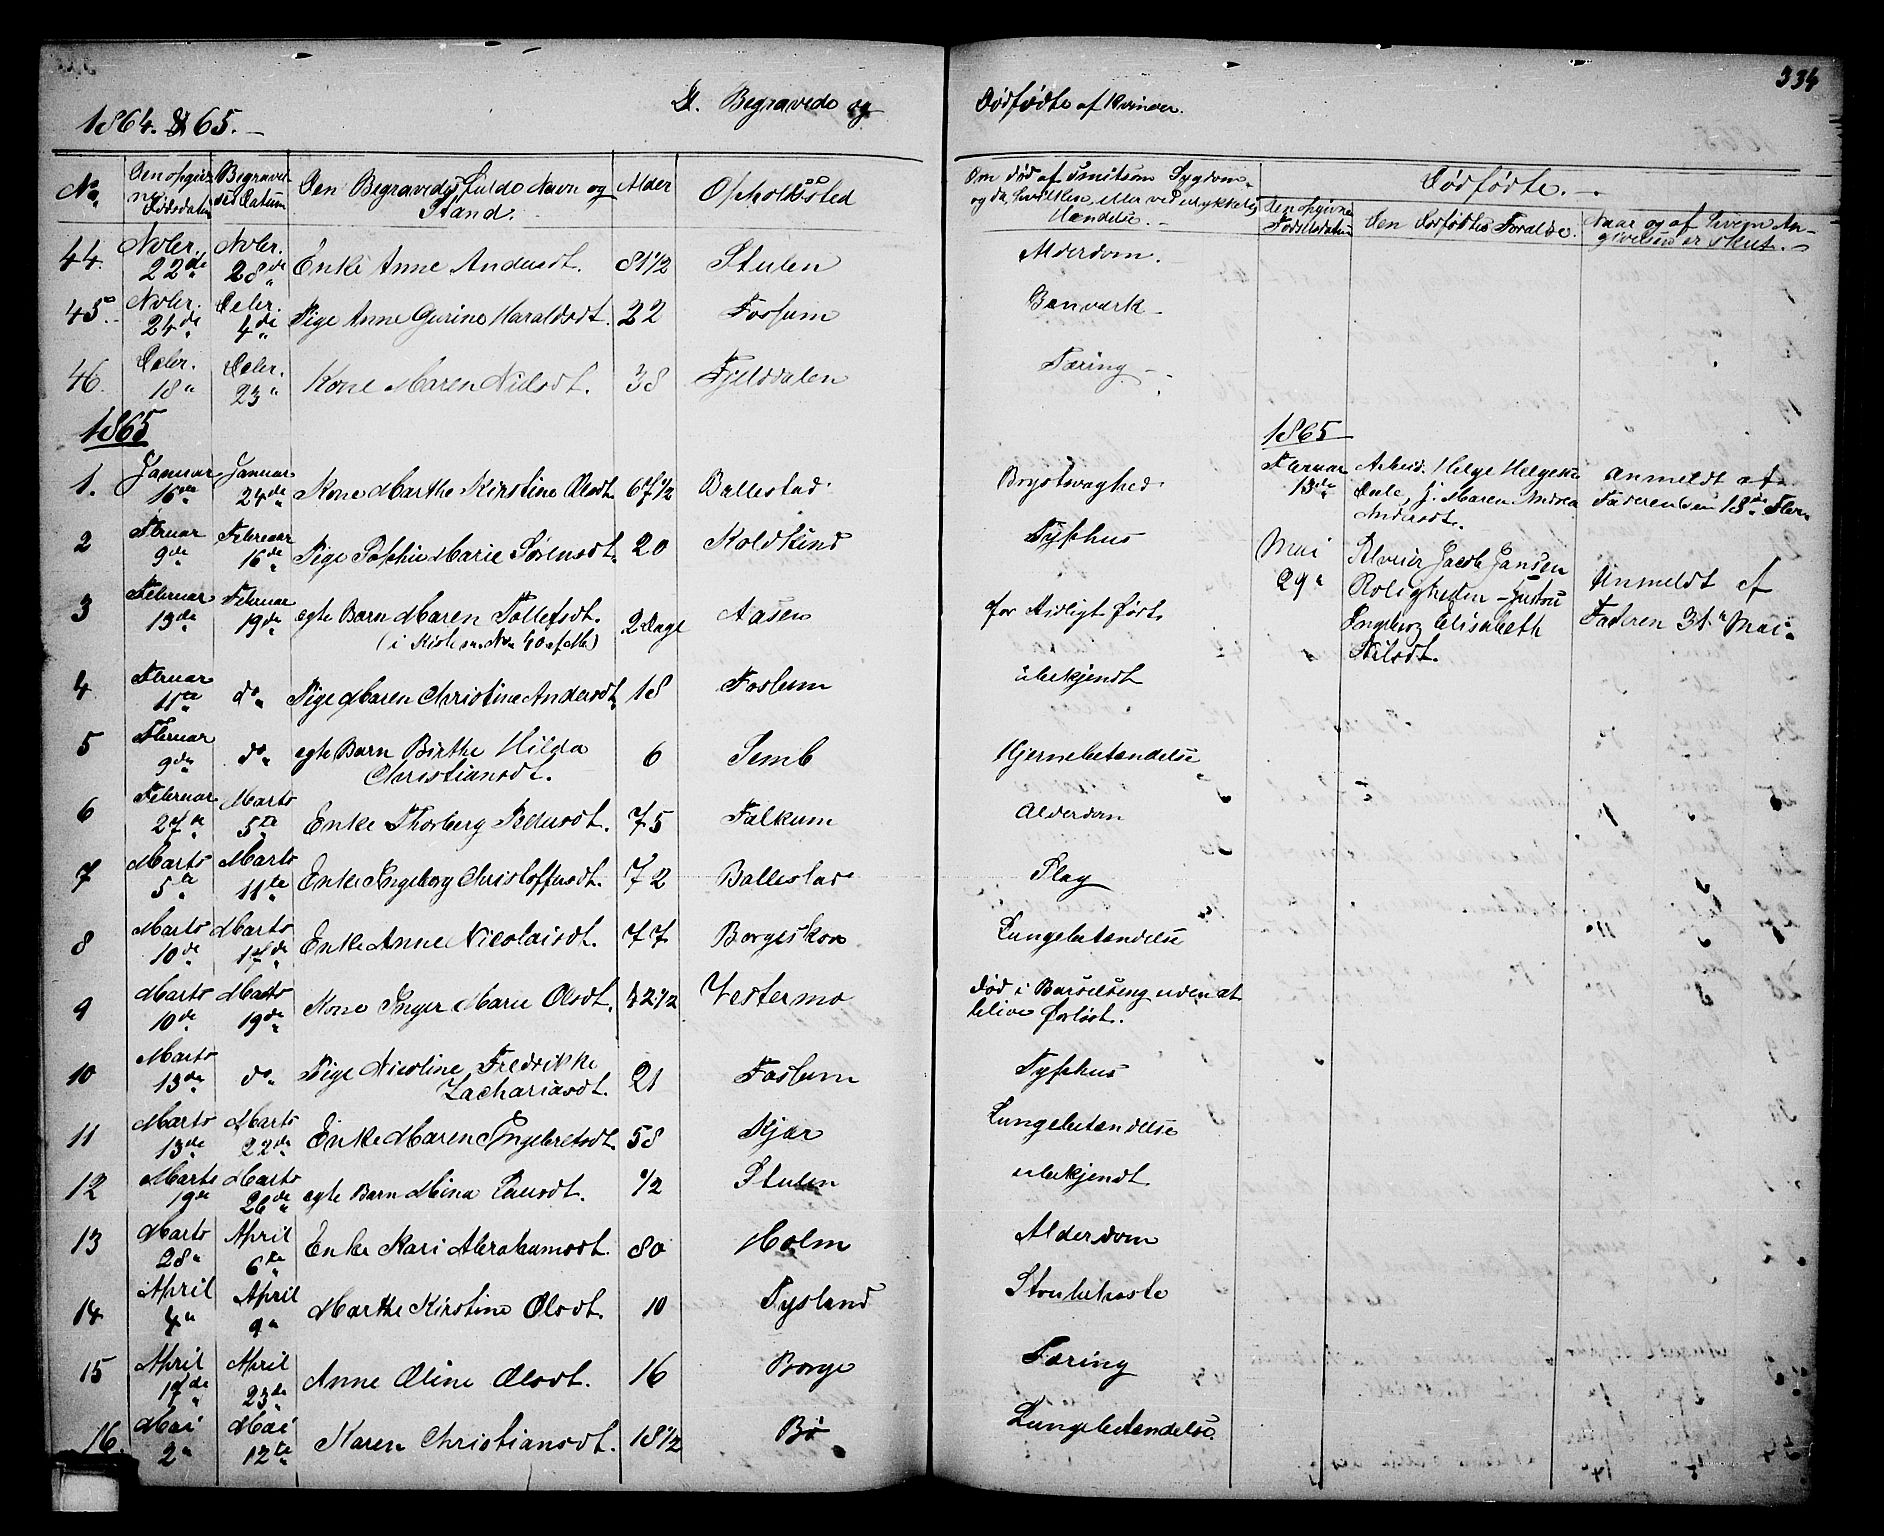 334
1864 & 65.
D. Begravede og Dødfødte af Kvinder.
No | Den opgivne Dødsdatum | Begravelses Datum | Den Begravedes fulde Navn og Stand. | Alder | Opholdssted | Om død af smitsom Sygdom og da hvilken, eller ved ulykkelig Hændelse. | Dødfødte.
Den opgivne Fødselsdatum | Den Dødfødtes Forældre. | Naar og af hvem Angivelsen er skeet.
44. | Novbr. 22de | Novbr. 28de | Enke Anne Andersdt. | 81 1/2 | Stulen | Alderdom.
45. | Novbr. 24de | Decbr. 4de | Pige Anne Gurine Haraldsdt. | 22 | Fossum | Benværk
46. | Decbr. 18 | Decbr. 23 | Kone Maren Nilsdt. | 38 | Fjelddalen | Tæring
1865
1. | Januar 16de | Januar 24de | Kone Marthe Kirstine Olsdt. | 67 1/2 | Ballestad | Brystsvaghed
2 | Februar 9de | Februar 16de | Pige Sophie Marie Sørensdt. | 20 | Koldkind | Typhus
3 | Februar 13de | Februar 19de | egte Barn Maren Tollefsdt. | 2 Dage | Aasen | for tidligt født
4 | Februar 15te | do | Pige Maren Christine Andersdt. | 18 | Fossum | ubekjendt
5 | Februar 9de | do | egte Barn Birthe Hilda Christiansdt. | 6 | Semb | Hjernebetændelse
6 | Februar 27de | Marts 5te | Enke Thorberg Pedersdt. | 75 | Falkum | Alderdom
7 | Marts 5te | Marts 11te | Enke Ingeborg Christoffersdt. | 72 | Ballestad | Slag
8 | Marts 10de | Marts 17de | Enke Anne Nicolaisdt. | 77 | Borgeskov | Lungebetændelse
9 | Marts 10de | Marts 19de | Kone Inger Marie Olsdt. | 42 1/2 | Vestermo | død i Barselseng uden at blive forløst.
10 | Marts 13de | do | Pige Nicoline Fredrikke Zachariasdt. | 21 | Fossum | Typhus
11 | Marts 13de | Marts 22de | Enke Maren Ingebretsdt. | 58 | Kjær | Lungebetændelse
12 | Marts 19de | Marts 26de | egte Barn Mina Larsdt. | 1/2 | Stulen | ubekjendt
13 | Marts 28 | April 6te | Enke Kari Abrahamsdt. | 80 | Holm | Alderdom
14 | April 4 | April 9 | Marthe Kirstine Olsdt. | 10 | Tysland | Strubehoste
15 | April 17de | April 23de | Anne Oline Olsdt. | 16 | Borge | Tæring
16. | Mai 2 | Mai 12te | Karen Christiansdt. | 18 1/2 | Bø | Lungebetændelse.
1865
Februar 13de | Arbeid. Helge Helgesen Maren Andrea Andersdt. | anmeldt af Faderen den 18de Febr.
Mai 29 | Jacob Jansen Roligheden Hustru Ingeborg Elisabeth Nilsdt. | Anmeldt af Faderen 31 Mai